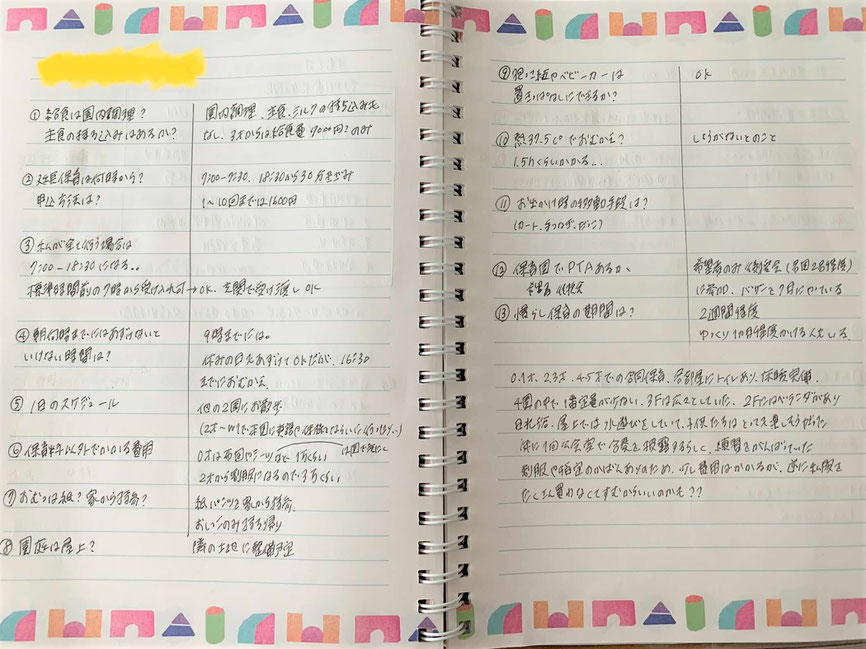 ① 給食は園内調理？
主食の持ち込みはあるか？
園内調理、主食、ミルクの持ち込みも
なし、3才からは給食費7000円?のみ
② 延長保育は何時から？
申込方法は？
7:00-7:30、18:30から30分きざみ
1〜10回までは1600円
③ 私が全て行う場合は
7:00-18:30になる..
標準時間前の7時から受け入れ可→OK、玄関で受け渡しOK
④ 朝何時までにはあずけないと
いけない時間は？
9時までには。
休みの日もあずけてOKだが、16:30
までにおむかえ
⑤ 1日のスケジュール
他の2園にお散歩
⑥ 保育料以外でかかる費用
0才は布団やシーツなど 1万くらい
2才から制服になるので3万くらい
⑦ おむつは紙？家から持参？
紙パンツを家から持参、
おしっこのみ持ち帰り
⑧ 園庭は屋上？
隣の土地に整備予定
⑨ 抱っこ紐やベビーカーは
置きっぱなしにできるか？
OK
⑩ 熱37.5℃でおむかえ？
1.5hくらいかかる..
しょうがないとのこと
⑪ お出かけ時の移動手段は？
(カート、手つなぎ、だっこ)
⑫ 保育園でPTAあるか、
希望者のみ 役員会(各回2名程度)
バザーを7月にやっている
⑬ 慣らし保育の期間は？
2週間程度
ゆっくり1カ月程度かける人もいる。
0.1才、2.3才、4.5才での合同保育、各部屋にトイレあり、床暖完備、
4園の中で1番定員が少ない、3Fは広々としていた、2Fにはベランダがあり
日よけ 屋上では水遊びをしていて、子供たちはとても楽しそうだった
年に1回公会堂で 披露するらしく、練習をがんばっていた
制服や指定のかばんありのため、少し費用はかかるが、逆に私服を
たくさん買わなくてすむからいいのかも??